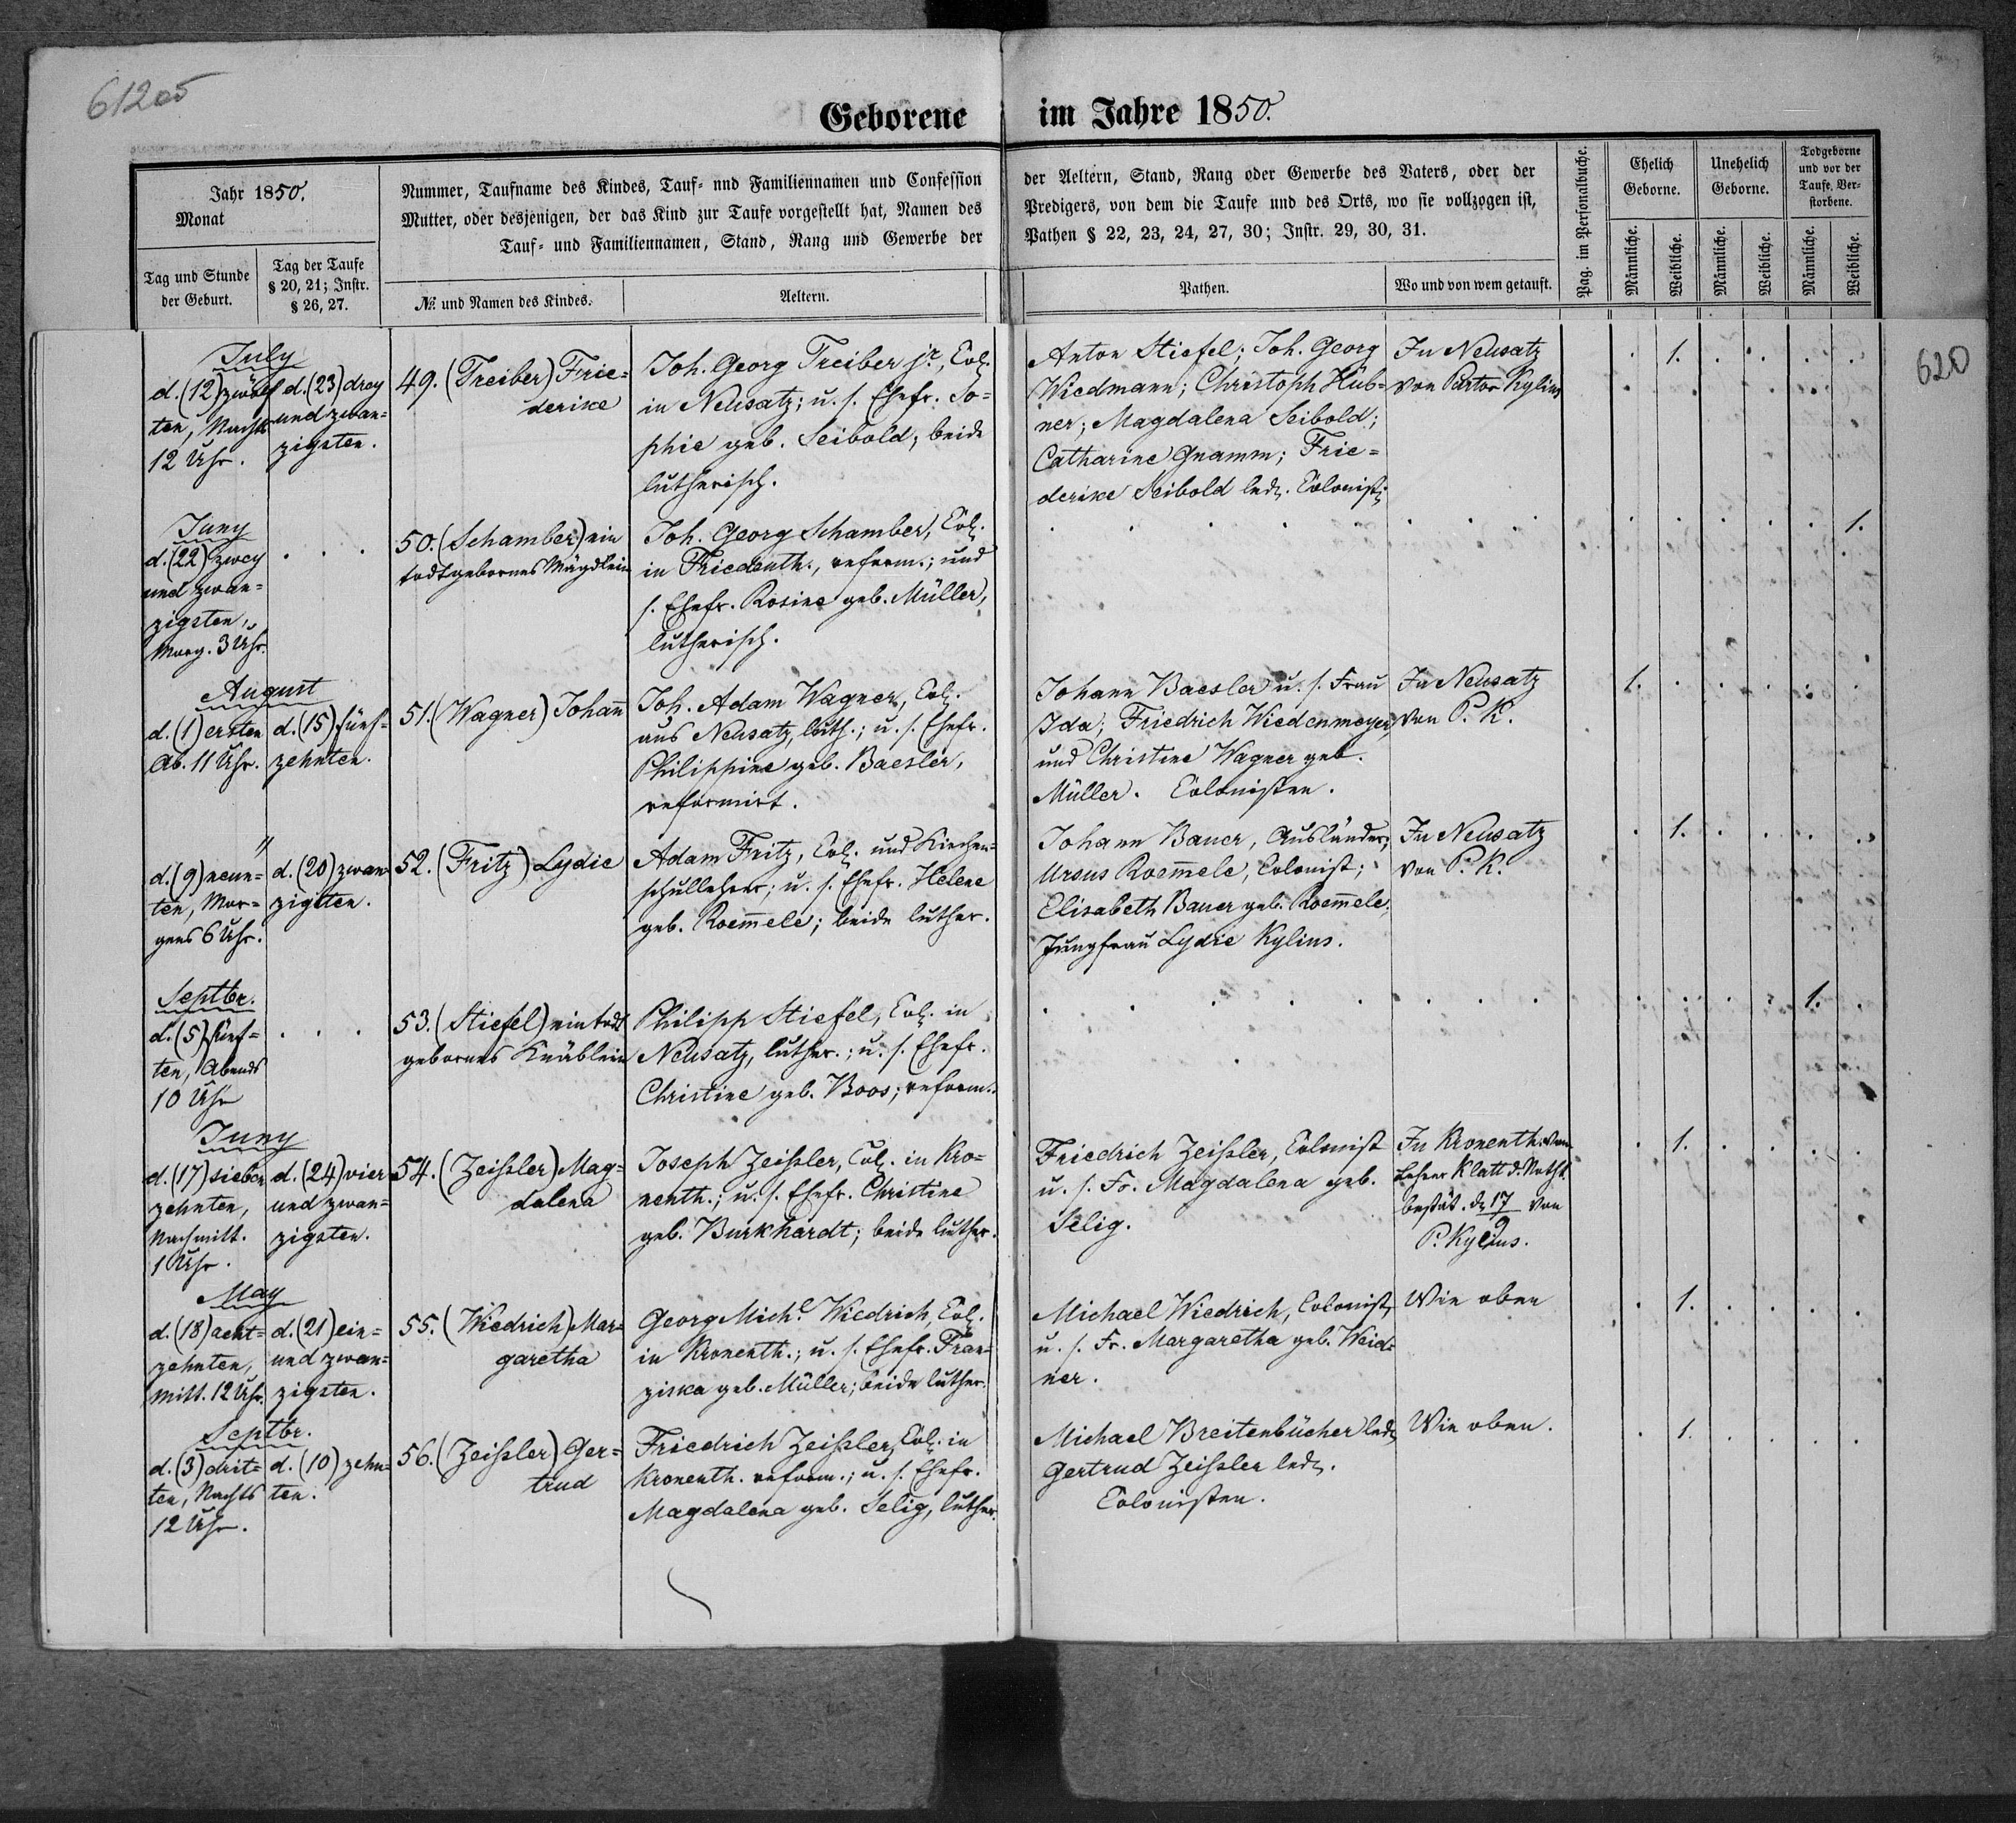 612 об
Geborene im Jahre 1850.
Jahr 1850.
Monat
Tag und Stunde
der Geburt.
Tag der Taufe
§ 20, 21; Instr.
§ 26, 27.
Nummer, Taufname des Kindes, Tauf- und Familiennamen und Confession
Mutter, oder desjenigen, der das Kind zur Taufe vorgestellt hat, Namen des
Tauf- und Familiennamen, Stand, Rang und Gewerbe der
№ und Namen des Kindes.
Aeltern.
der Aeltern, Stand, Rang oder Gewerbe des Vaters, oder der
Predigers, von dem die Taufe und des Orts, wo sie vollzogen ist,
Pathen § 22, 23, 24, 27, 30; Instr. 29, 30, 31.
Pathen.
Wo und von wem getauft.
Pag. im Personalbuche.
Ehelich
Geborne.
Unehelich
Geborne.
Todgeborne
und vor der
Taufe, Ver-
storbene.
Männliche.
Weibliche.
Männliche.
Weibliche.
Männliche.
Weibliche.
620
July
d. (12) zwölf
ten, Nachts
12 Uhr.
d. (23) drey
und zwan=
zigsten.
49. (Treiber) Frie=
derike
Joh. Georg Treiber jr., Col.
in Neusatz; u. s. Ehefr. So=
phie geb. Seibold; beide
lutherisch.
Anton Stiefel; Joh. Georg
Wiedmann; Christoph Hüb=
ner; Magdalena Seibold;
Catharine Gnamm; Frie=
derike Seibold led. Colonist.
In Neusatz
von Pastor Kylius
1.
Juny
d. (22) zwey
und zwan=
zigsten,
Morg. 3 Uhr.
50. (Schamber) ein
todtgebornes Mägdlein
Joh. Georg Schamber, Col.
in Friedenth., reform.; und
s. Ehefr. Rosine geb. Müller,
lutherisch.
1.
August
d. (1) ersten
Ab. 11 Uhr.
d. (15) fünf=
zehnten.
51. (Wagner) Johañ
Joh. Adam Wagner, Col.
aus Neusatz, luth.; u. s. Ehefr.
Philippine geb. Baesler,
reformirt.
Johann Baesler u. s. Frau
Ida; Friedrich Wiedenmeyer
und Christine Wagner geb.
Müller. Colonisten.
In Neusatz
von P. K.
1.
"
d. (9) neun=
ten, Mor=
gens 6 Uhr.
d. (20) zwan
zigsten.
52. (Fritz) Lydie
Adam Fritz, Col. und Kirchen=
schullehrer; u. s. Ehefr. Helene
geb. Roem̄ele; beide luther.
Johann Bauer, Ausländer;
Ursus Roem̄ele, Colonist;
Elisabeth Bauer geb. Roem̄ele;
Jungfrau Lydie Kylius.
In Neusatz
von P. K.
1.
Septbr.
d. (5) fünf=
ten, Abends
10 Uhr
53. (Stiefel) ein todt
gebornes Knäblein
Philipp Stiefel, Col. in
Neusatz, luther.; u. s. Ehefr.
Christine geb. Boos; reform.
1.
Juny
d. (17) sieben
zehnten,
Nachmitt.
1 Uhr.
d. (24) vier
und zwan=
zigsten.
54. (Zeißler) Mag=
dalena
Joseph Zeißler, Col. in Kro=
nenth.; u. s. Ehefr. Christine
geb. Burkhardt; beide luther.
Friedrich Zeißler, Colonist
u. s. Fr. Magdalena geb.
Selig.
In Kronenth. von
Lehrer Klatt d. Notht.
bestät. d. 17/9 von
P. Kylius.
1.
May
d. (18) acht=
zehnten,
Mitt. 12 Uhr.
d. (21) ein=
und zwan=
zigsten.
55. (Wiedrich) Mar=
garetha
Georg Michl. Wiedrich, Col.
in Kronenth.; u. s. Ehefr. Fran=
ziska geb. Müller; beide luther.
Michael Wiedrich, Colonist,
u. s. Fr. Margaretha geb. Weid=
ner.
Wie oben
1.
Septbr.
d. (3) drit=
ten, Nachts
12 Uhr.
d. (10) zehn=
ten.
56. (Zeißler) Ger=
trud
Friedrich Zeißler, Col. in
Kronenth. reform.; u. s. Ehefr.
Magdalena geb. Selig, luther.
Michael Breitenbücher led.
Gertrud Zeißler led.
Colonisten.
Wie oben.
1.